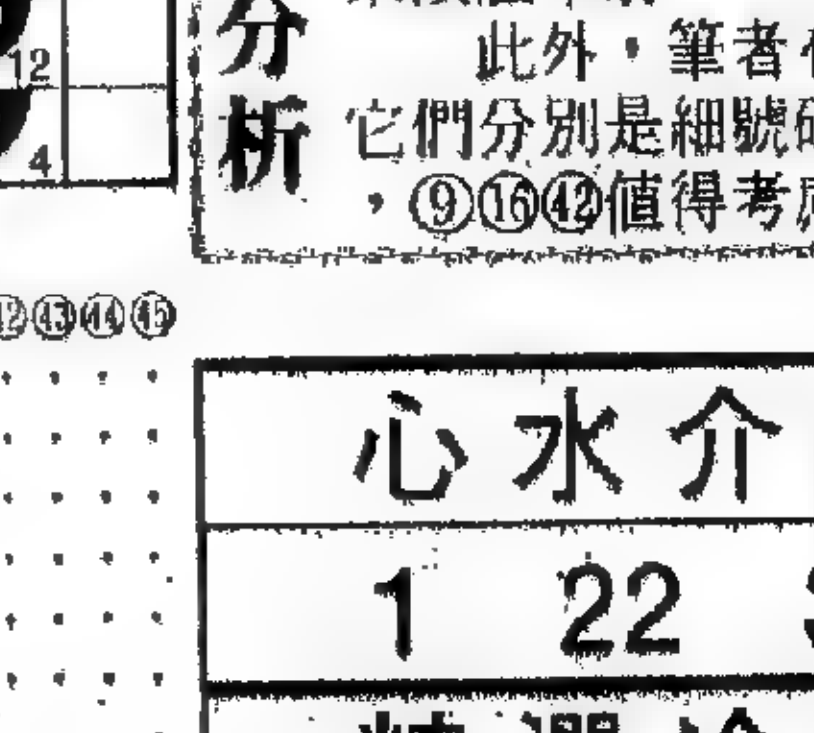 12
4
分析
此外，筆者
它們分別是細號
，⑨⑯㊷值得考
㊸㊹㊺
心水介
1 22